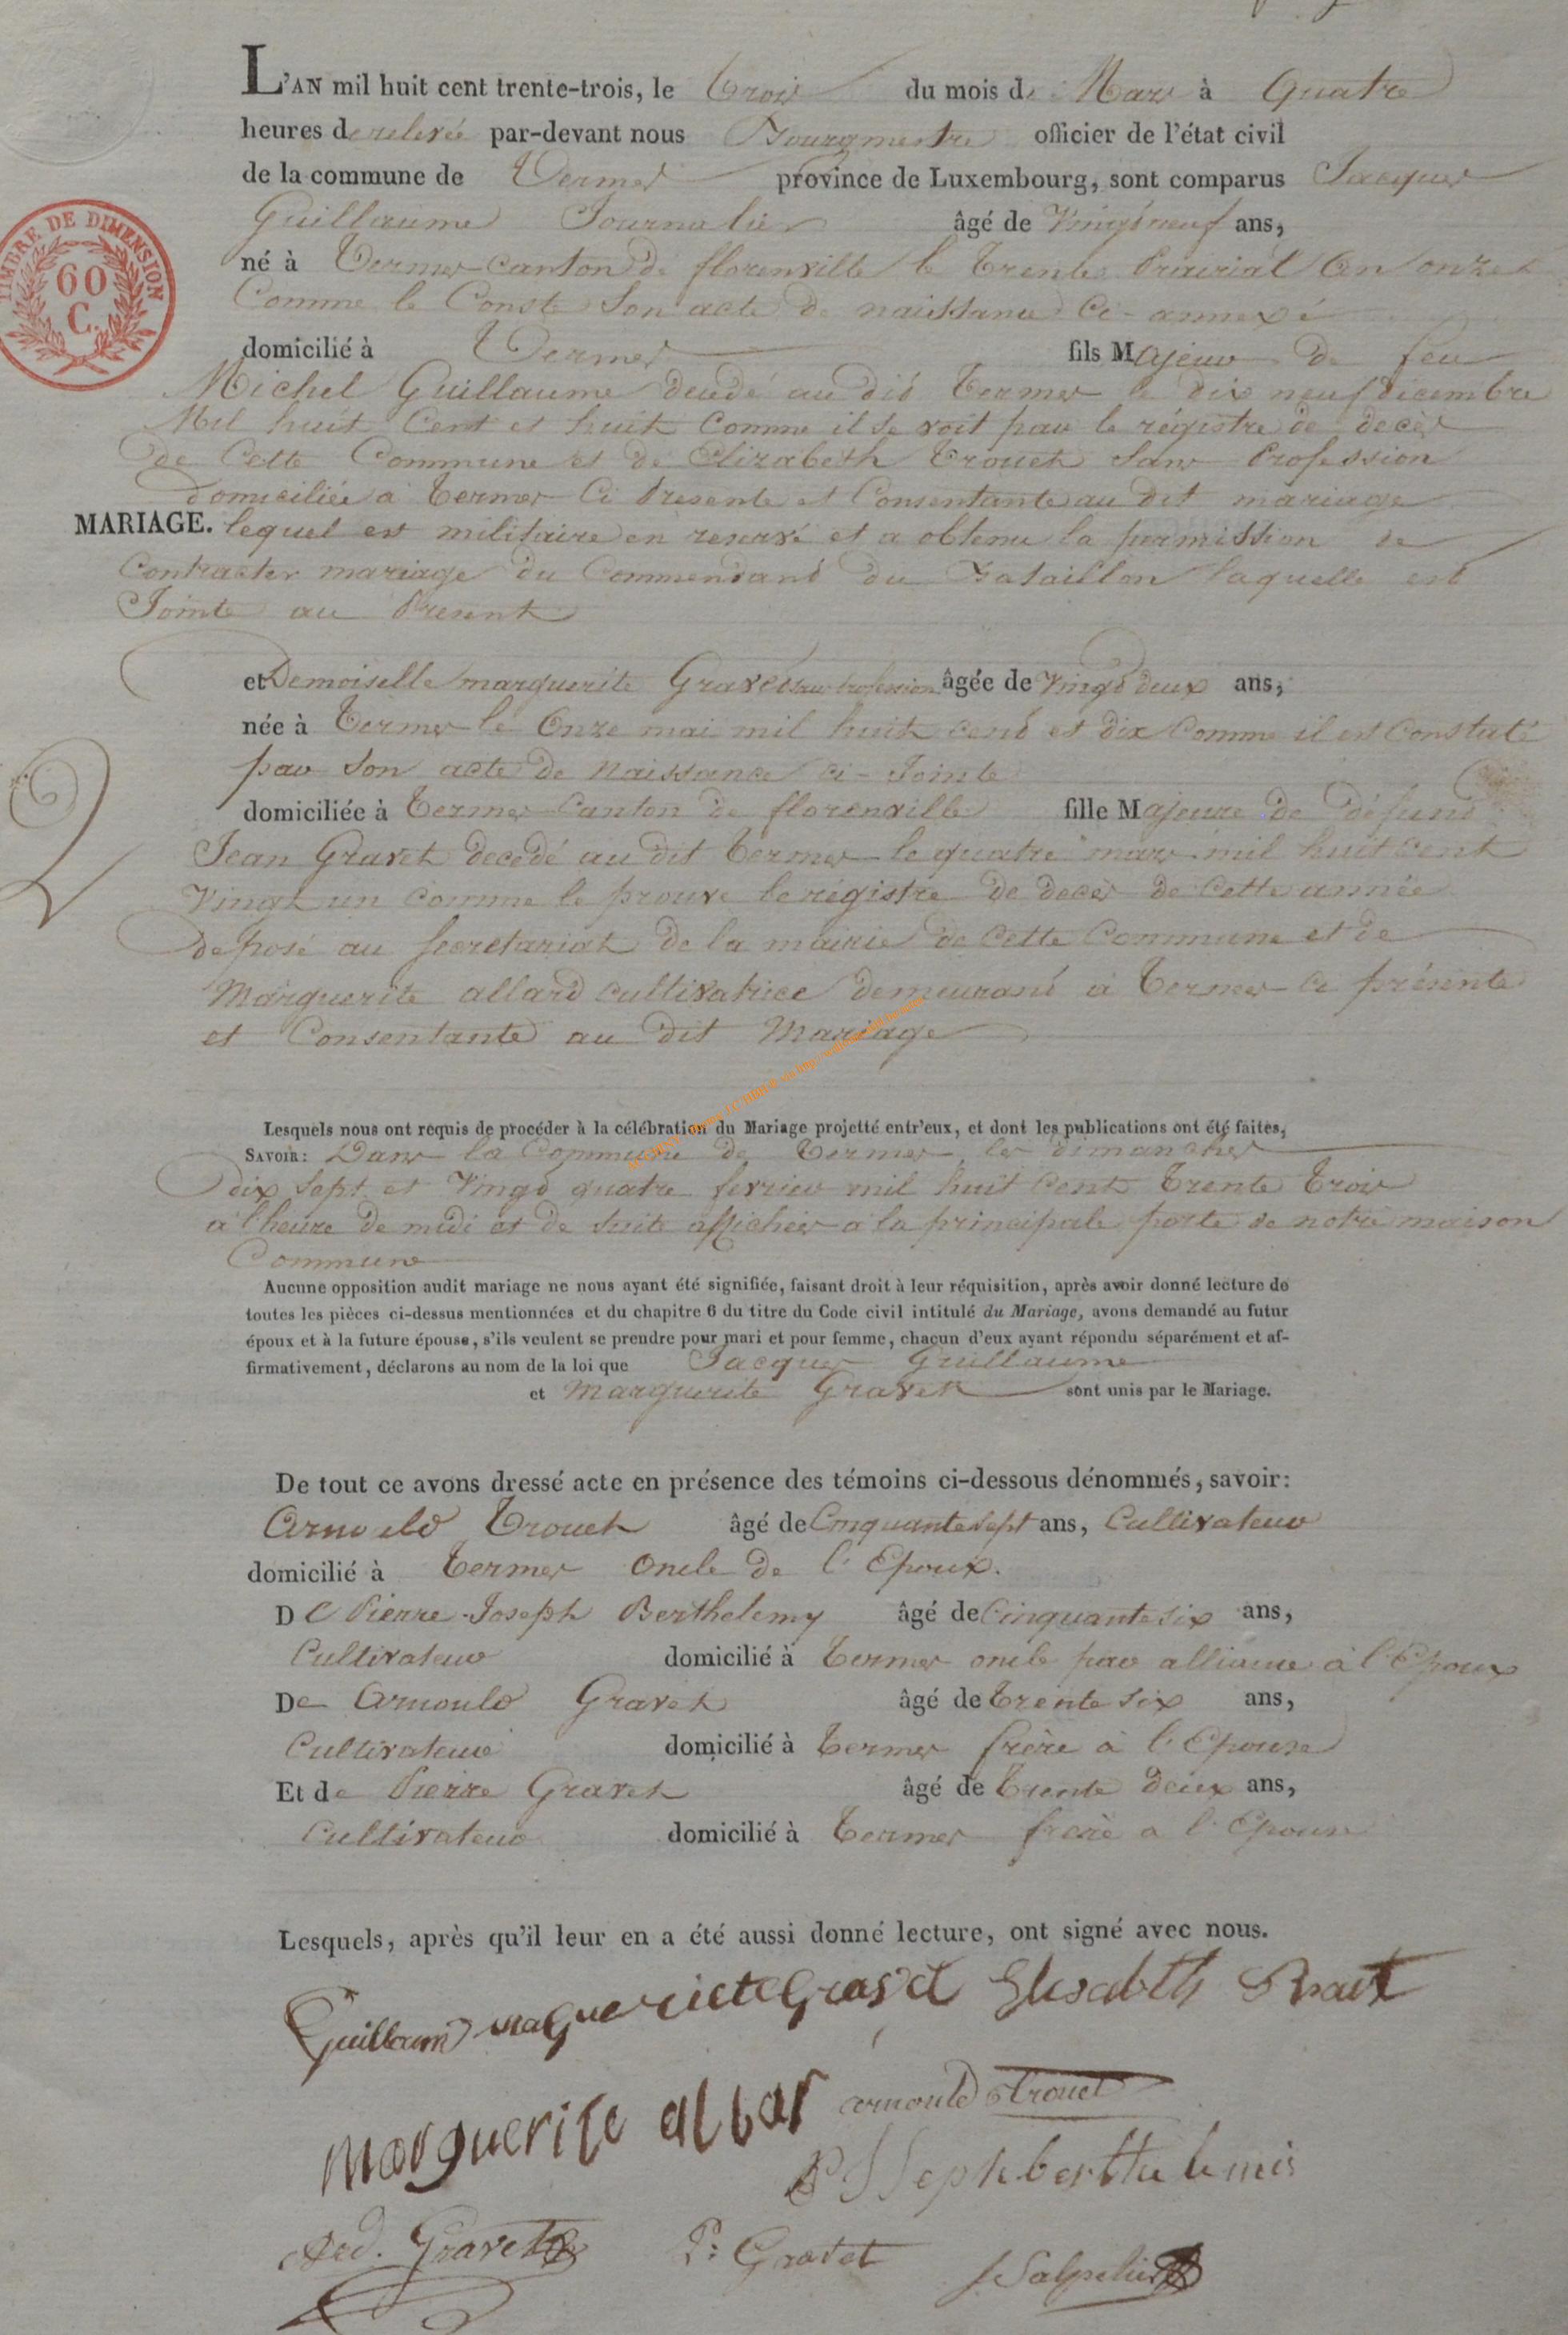 L'AN mil huit cent trente-trois, le trois du mois de Mars à quatre
heures de relevée par-devant nous Bourgmestre officier de l'état civil
de la commune de Termes province de Luxembourg, sont comparus Jacques
Guillaume Journalier âgé de vingt neuf ans,
né à Termes canton de florenville le trente Prairial an onze
Comme le Conste Son acte de naissance ci-annexé
domicilié à Termes fils Majeur de feu
Michel Guillaume decedé au dit Termes le dix neuf decembre
Mil huit Cent et huit Comme il se voit par le régistre de decès
de Cette Commune et de Elizabeth Trouet Sans Profession
domiciliée à Termes Ci Presente et Consentante au dit mariage
MARIAGE. lequel est militaire en reserve et a obtenu la permission de
Contracter mariage du Commendant du Bataillon laquelle est
Jointe au Present
et Demoiselle marguerite Gravet sans profession âgée de Vingt deux ans,
née à Termes le Onze mai mil huit cent et dix Comme il est Constaté
par Son acte de Naissance ci-Jointe
domiciliée à Termes Canton de florenville fille Majeure de défunt
Jean Gravet decedé au dit Termes le quatre mars mil huit cent
Vingt un comme le prouve le régistre de decès de Cette année
deposé au Secretariat de la mairie de Cette Commune et de
Marguerite allard cultivatrice demeurant à Termes ci présente
et Consentante au dit Mariage
Lesquels nous ont requis de procéder à la célébration du Mariage projetté entr'eux, et dont les publications ont été faites,
SAVOIR: Dans la Commune de Termes, les dimanches
dix Sept et Vingt quatre fevrier mil huit Cent Trente Trois
à l'heure de midi et de Suite affichées à la principale porte de notre maison
Commune
Aucune opposition audit mariage ne nous ayant été signifiée, faisant droit à leur réquisition, après avoir donné lecture de
toutes les pièces ci-dessus mentionnées et du chapitre 6 du titre du Code civil intitulé du Mariage, avons demandé au futur
époux et à la future épouse, s'ils veulent se prendre pour mari et pour femme, chacun d'eux ayant répondu séparément et af-
firmativement, déclarons au nom de la loi que Jacques Guillaume
et Marguerite Gravet sont unis par le Mariage.
De tout ce avons dressé acte en présence des témoins ci-dessous dénommés, savoir:
Arnould Trouet âgé de Cinquante sept ans, Cultivateur
domicilié à Termes Oncle de l'Epoux.
De Pierre-Joseph Berthelemy âgé de Cinquante six ans,
Cultivateur domicilié à Termes oncle par alliance à l'Epoux
De Arnould Gravet âgé de Trente six ans,
Cultivateur domicilié à Termes frère à l'Epouse
Et de Pierre Gravet âgé de Trente deux ans,
Cultivateur domicilié à Termes frère a l'Epouse
Lesquels, après qu'il leur en a été aussi donné lecture, ont signé avec nous.
Guillaume
Elisabeth
Marguerite allar
arnould trouet
Ard. Gravet
P: Gravet
TIMBRE DE DIMENSION
60
C.